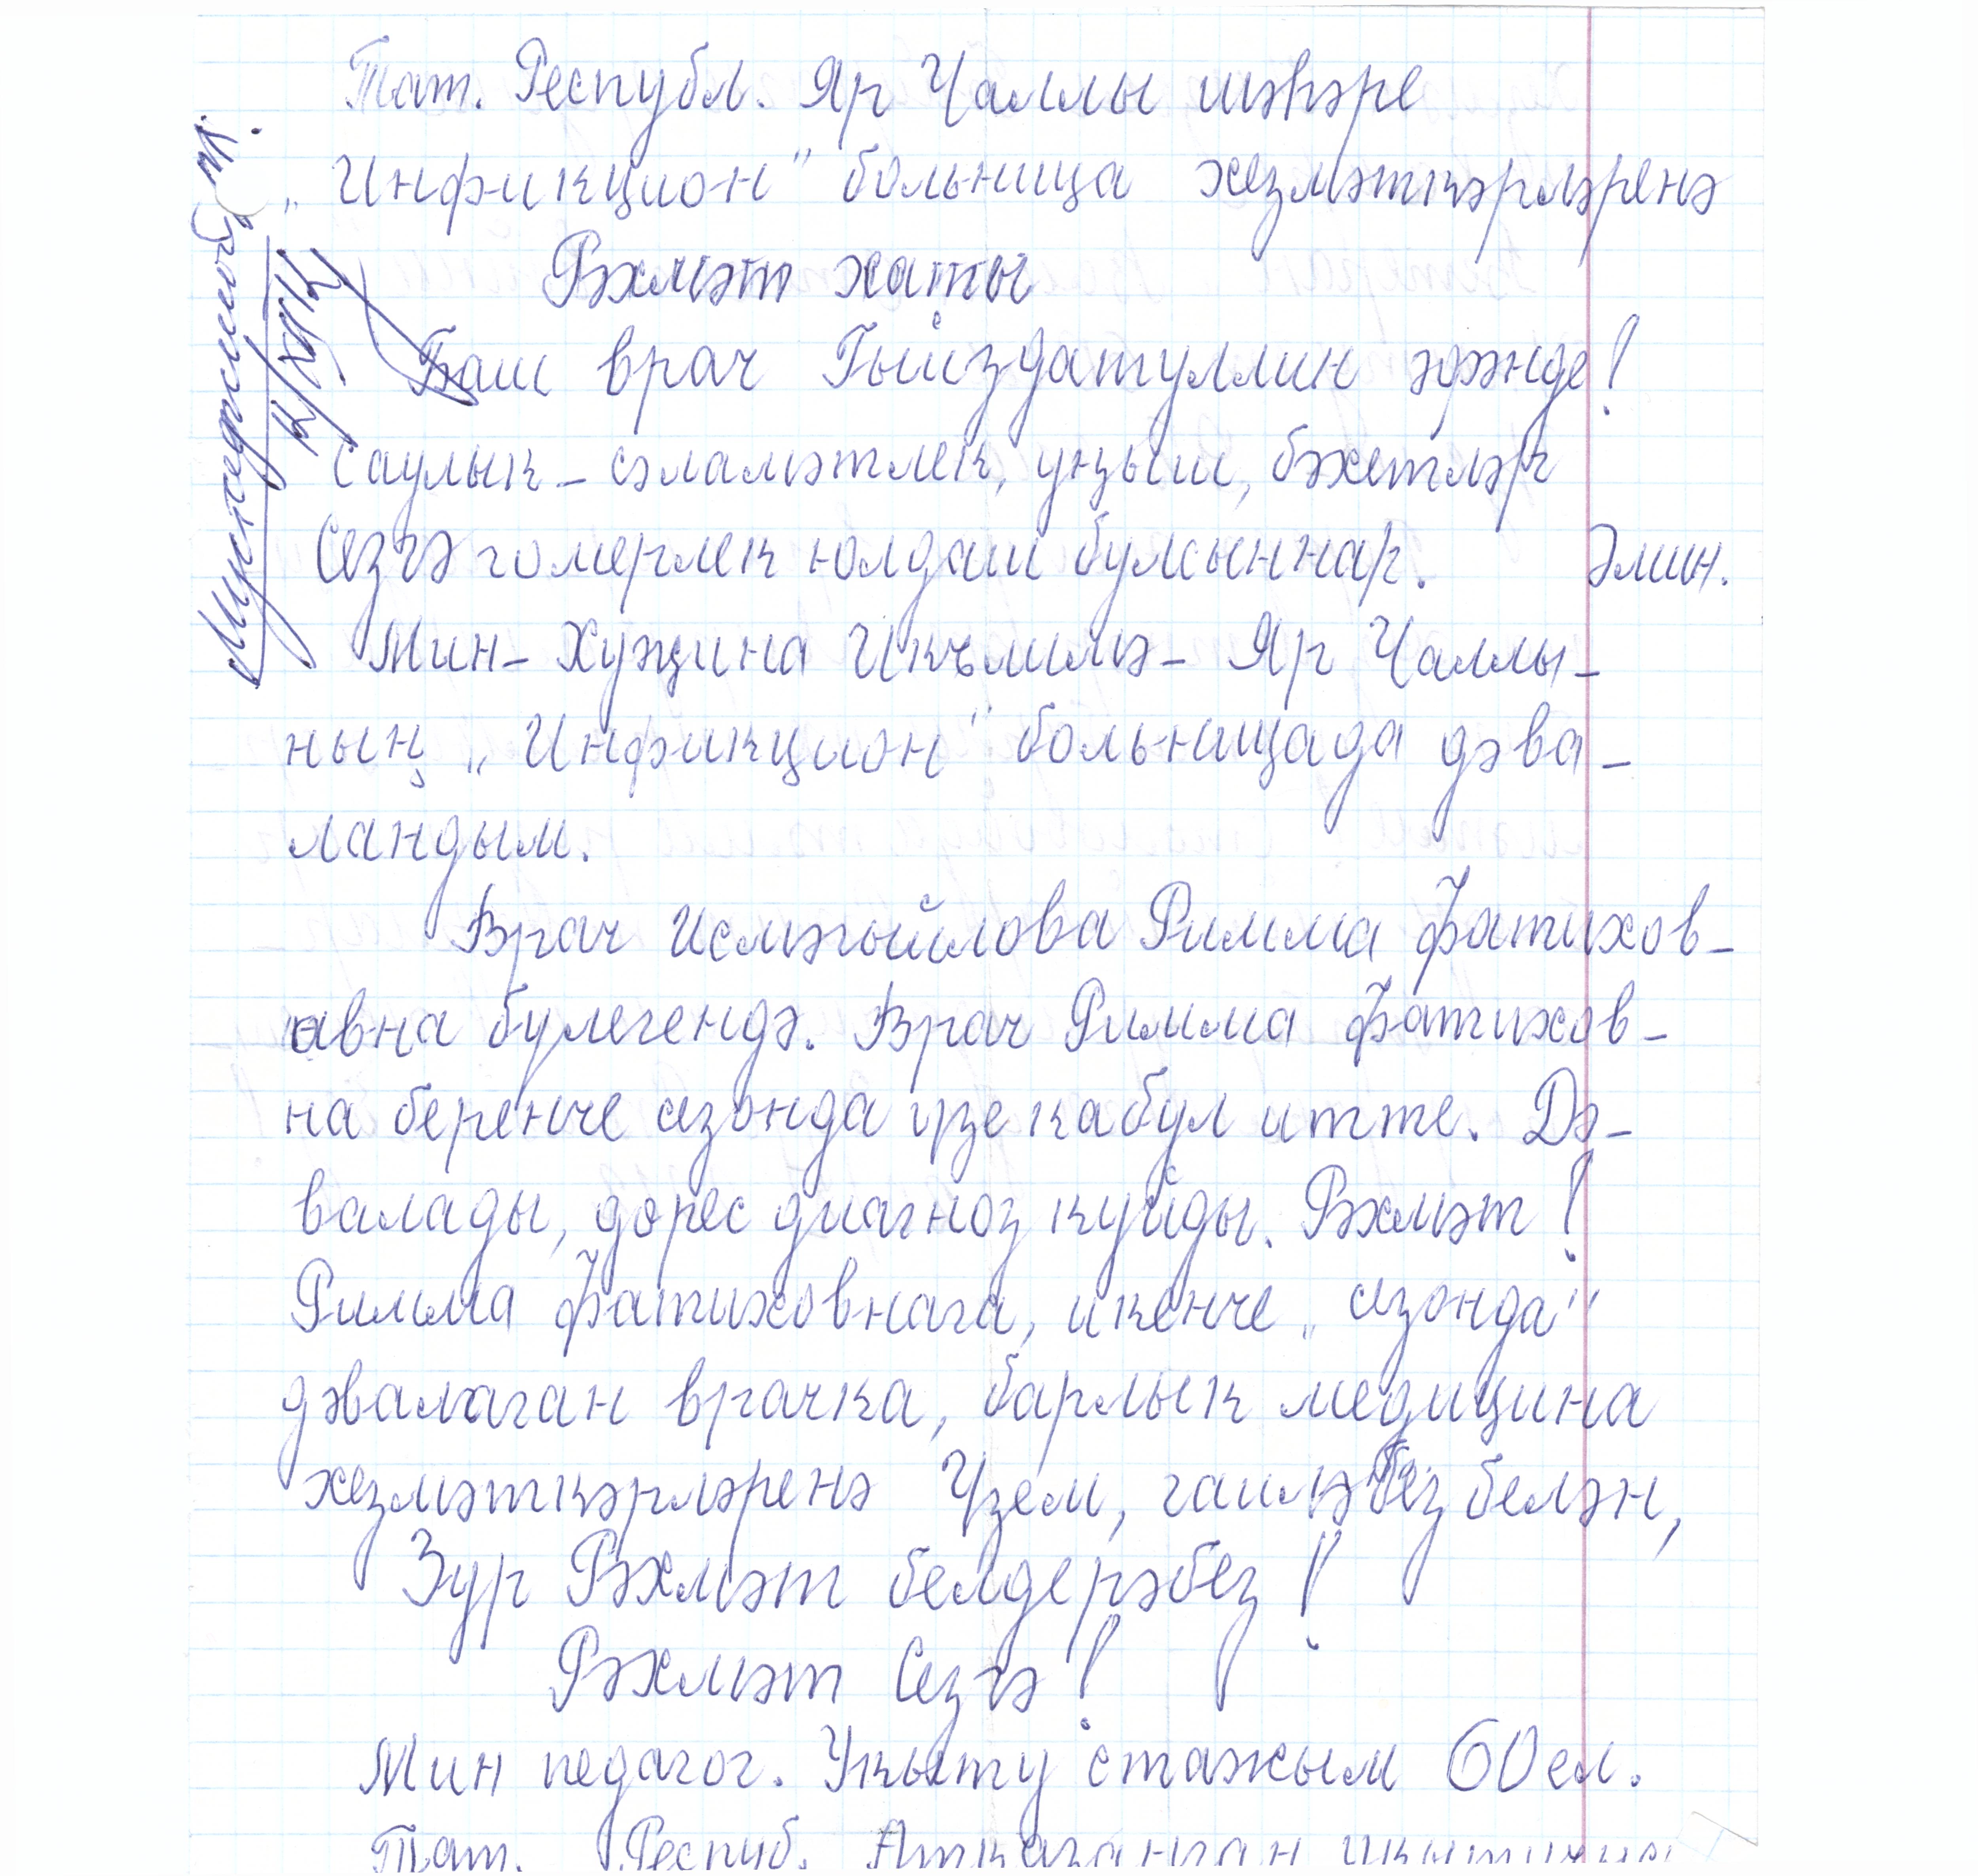 Тат. Республ. Яр Чаллы шәһәре
„Инфикцион" больница хезмәткәрләренә
Рәхмәт хаты
Баш врач Гыйздатуллин әфәнде!
Саулык-сәламәтлек, уңыш, бәхетләр
Сезгә гомерлек юлдаш булсыннар. Әмин.
Мин- Хуҗина Икълимә- Яр Чаллы-
ның „Инфикцион" больницада дәва-
ландым.
Врач Исмәгыйлова Римма Фатихов-
овна бүлегендә. Врач Римма Фатихов-
на беренче сезонда үзе кабул итте. Дә-
валады, дөрес диагноз куйды. Рәхмәт!
Римма Фатиховнага, икенче „сезонда"
дәвалаган врачка, барлык медицина
хезмәткәрләренә Үзем, гаиләбез белән,
Зур Рәхмәт белдерәбез!
Рәхмәт Сезгә!
Мин педагог. Укыту стажым 60 ел.
Тат. Респуб. Атказанган укытучы